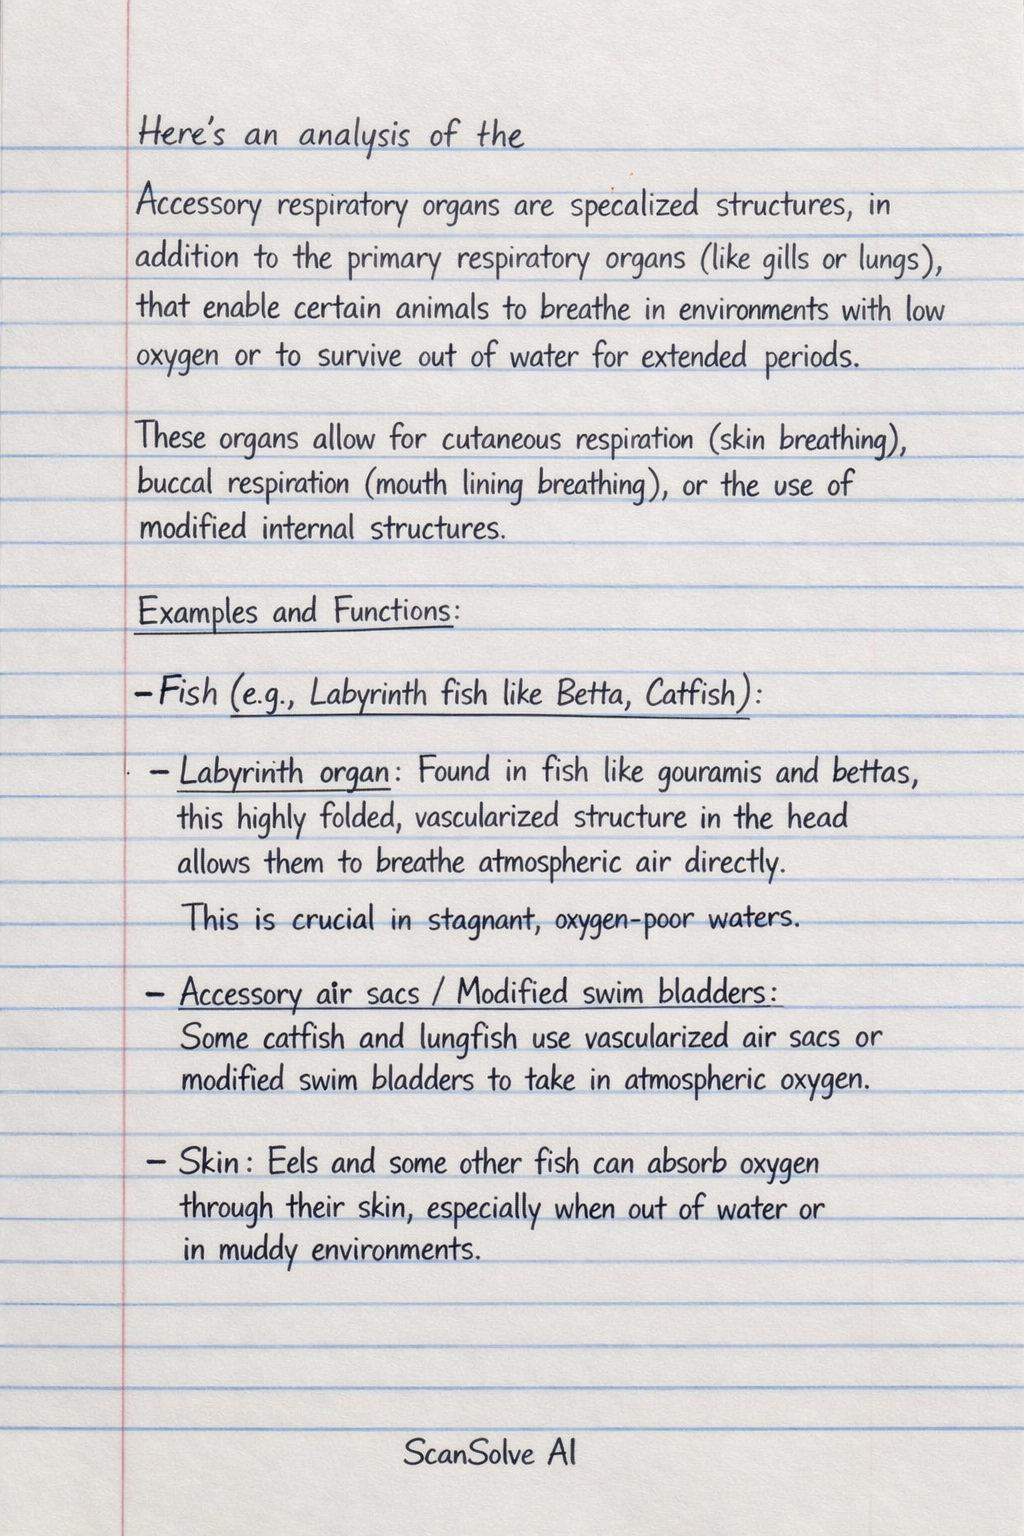 Here's an analysis of the
Accessory respiratory organs are specalized structures, in
addition to the primary respiratory organs (like gills or lungs),
that enable certain animals to breathe in environments with low
oxygen or to survive out of water for extended periods.
These organs allow for cutaneous respiration (skin breathing),
buccal respiration (mouth lining breathing), or the use of
modified internal structures.
Examples and Functions:
– Fish (e.g., Labyrinth fish like Betta, Catfish):
– Labyrinth organ: Found in fish like gouramis and bettas,
this highly folded, vascularized structure in the head
allows them to breathe atmospheric air directly.
This is crucial in stagnant, oxygen-poor waters.
– Accessory air sacs / Modified swim bladders:
Some catfish and lungfish use vascularized air sacs or
modified swim bladders to take in atmospheric oxygen.
– Skin: Eels and some other fish can absorb oxygen
through their skin, especially when out of water or
in muddy environments.
ScanSolve AI